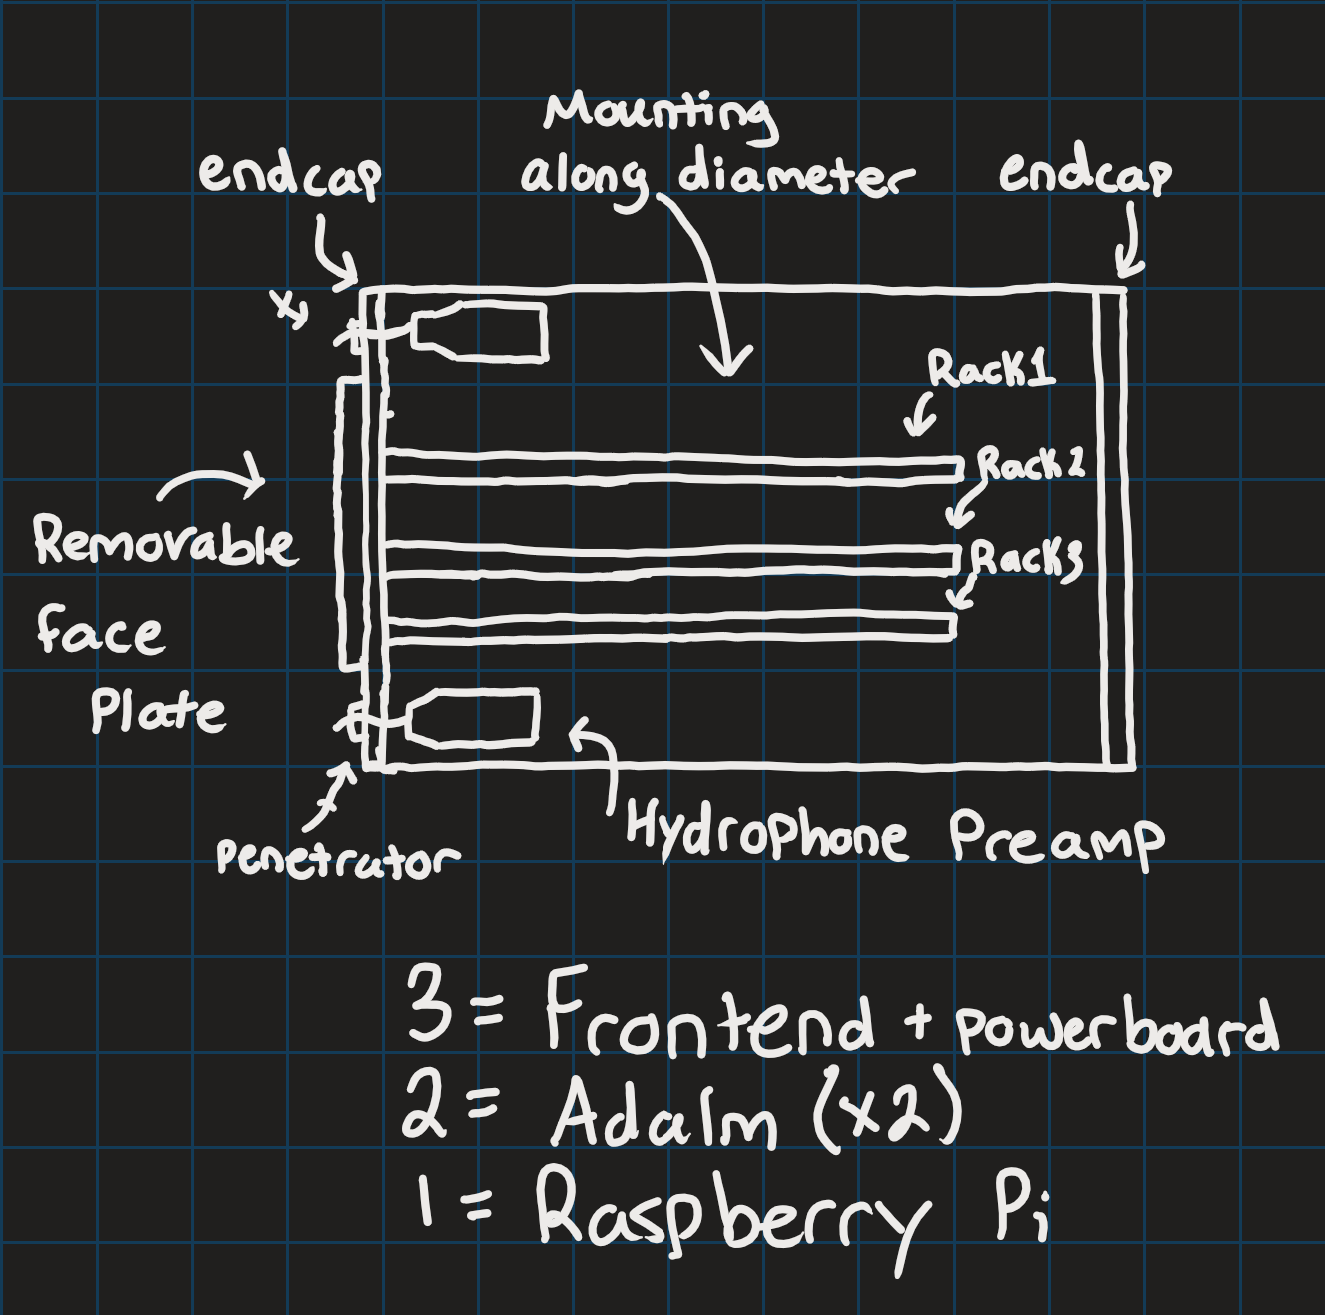 Mounting
along diameter
endcap
endcap
Rack1
Rack2
Rack3
Removable
face
Plate
Penetrator
Hydrophone Preamp
3 = Frontend + powerboard
2 = Adalm (x2)
1 = Raspberry Pi